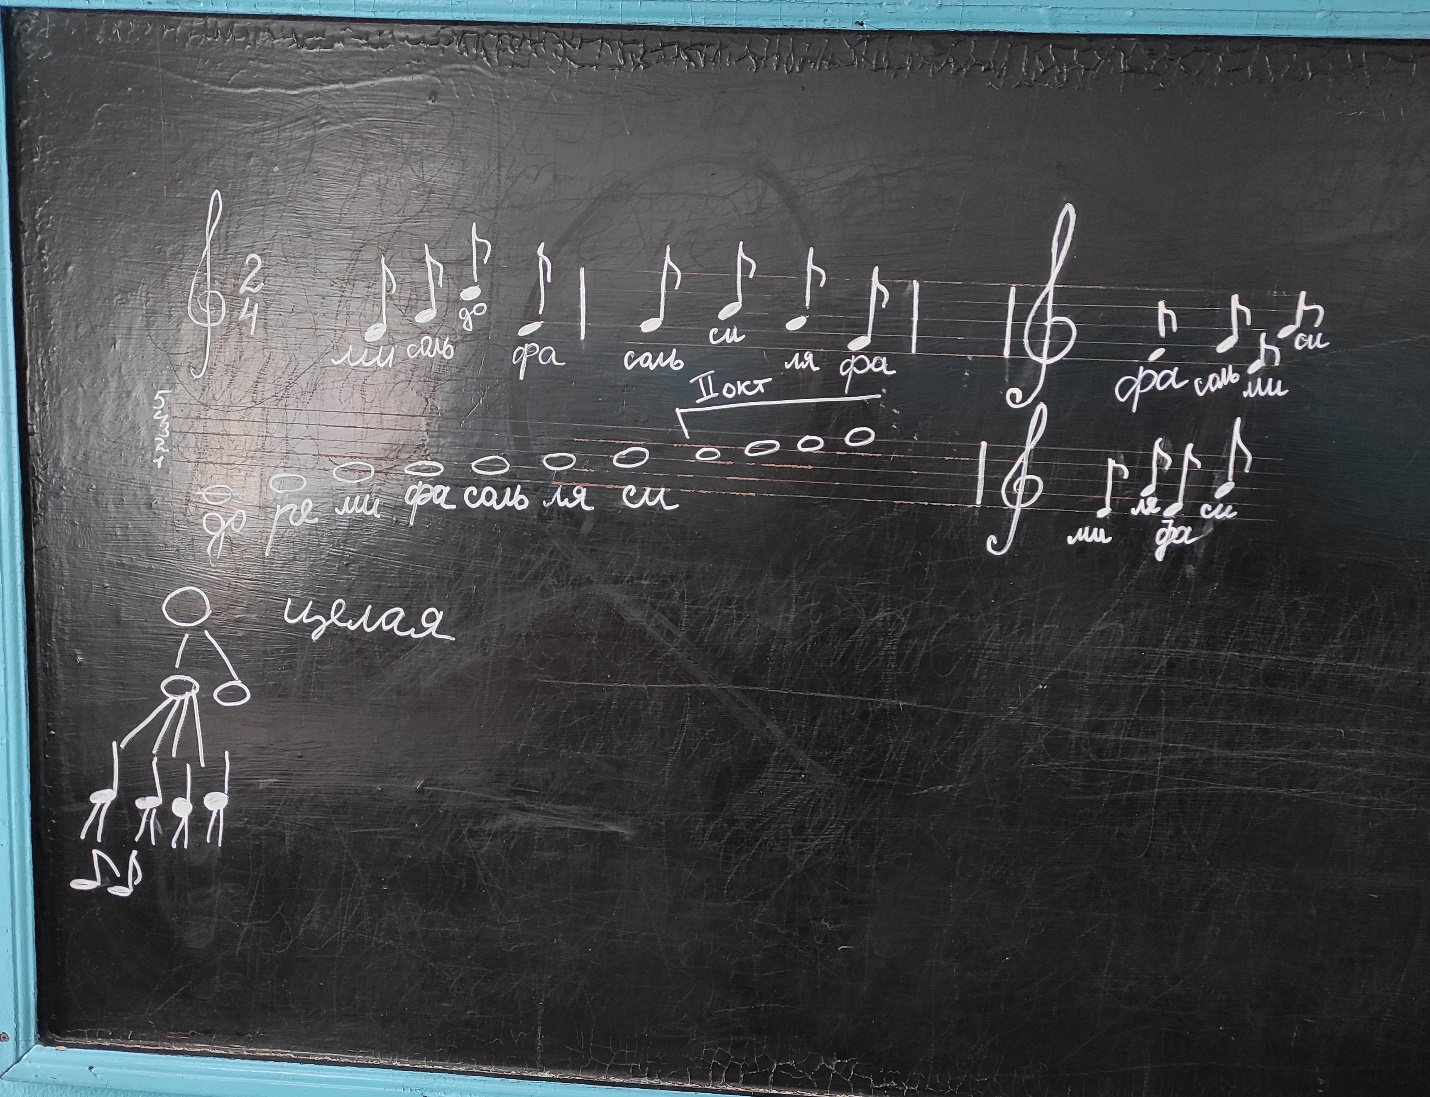 2
4
ми соль до фа соль си ля фа
фа соль ми си
II окт
5
4
3
2
1
до ре ми фа соль ля си
ми ля фа си
целая